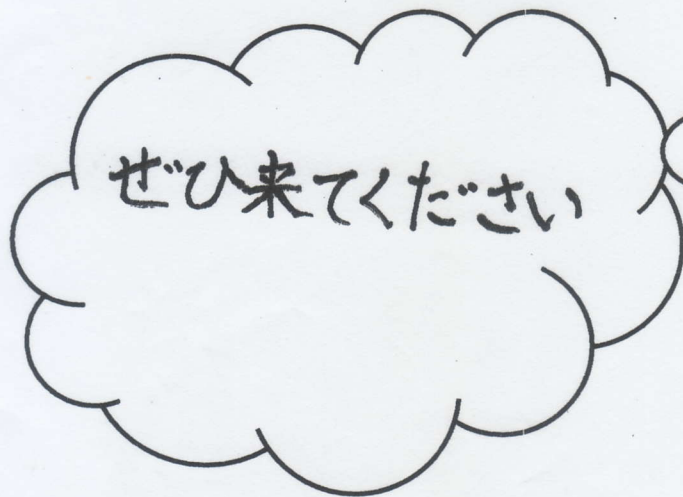 ぜひ来てください